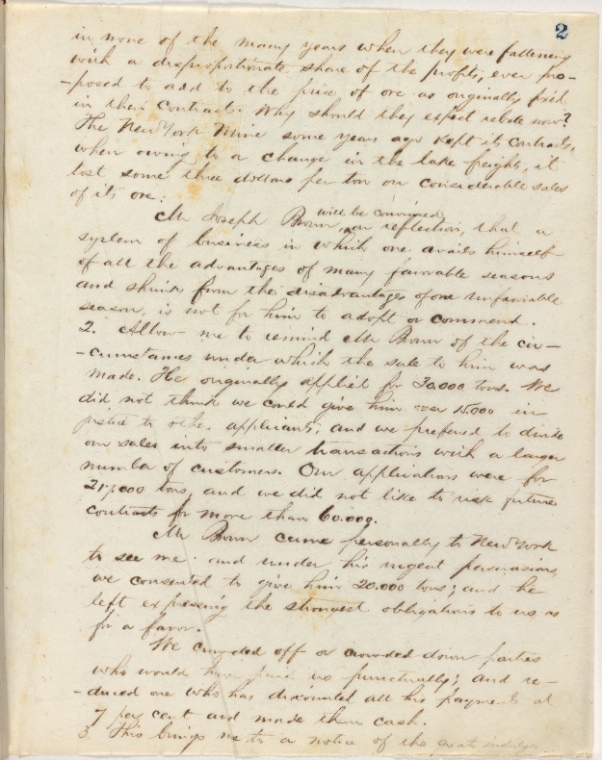 2
in none of the many years when they were fattening
with a disproportionate share of the profits, ever pro-
-posed to add to the price of ore as originally fixed
in their Contracts. Why should they expect rebate now?
The New York Mine some years ago kept its Contracts,
when owing to a change in the lake freights, it
lost some three dollars per ton on considerable sales
of its ore.
will be convinced
Mr Joseph Brown, on reflection, that a
system of business in which one avails himself
of all the advantages of many favorable seasons
and shrinks from the disadvantages of one unfavorable
season, is not for him to adopt or commend.
2. Allow me to remind Mr Brown of the cir-
-cumstances under which the sale to him was
made. He originally applied for 30.000 tons. We
did not think we could give him over 15.000 in
justice to other applicants; and we preferred to divide
our sales into smaller transactions with a larger
number of customers. Our applications were for
tons, and we did not like to risk future
contracts for more than 60.000.
Mr Brown came personally to New York
to see me and under his urgent persuasions,
we consented to give him 20.000 tons; and he
left expressing the strongest obligations to us as
for a favor.
We crowded off or crowded down parties
who would have us punctually; and re-
-duced one who has discounted all his payments at
7 per cent and made them cash.
3. This brings me to a notice of the great